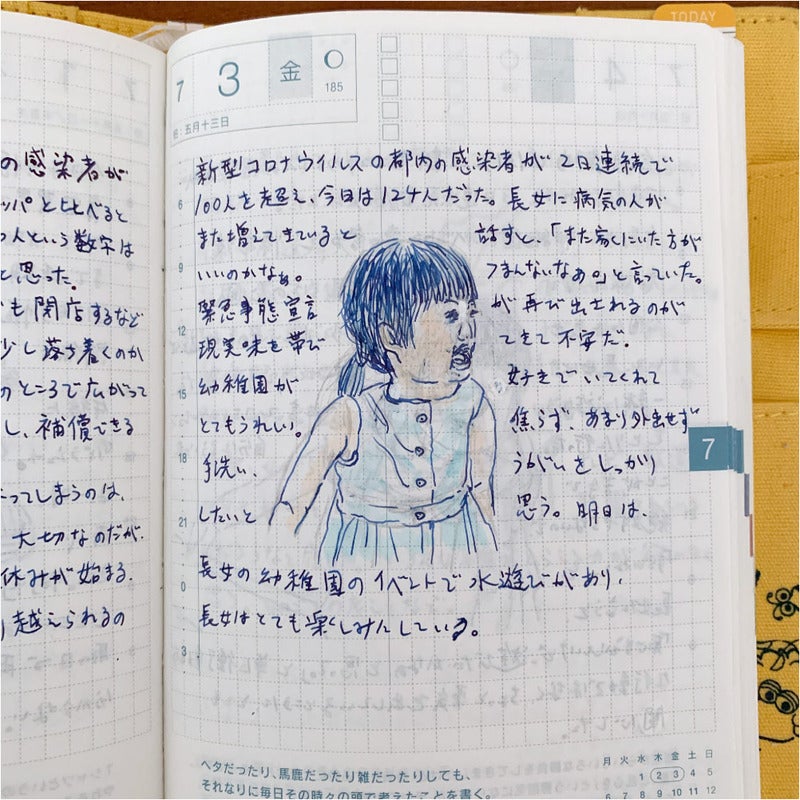 の感染者が
ッパと比べると
人という数字は
と思った。
も閉店するなど
少し落ち着くのか
のところで広がって
し、補償できる
ってしまうのは、
大切なのだが、
休みが始まる.
越えられるの
TODAY
7 3 金
185
五月十三日
新型コロナウイルスの都内の感染者が2日連続で
6 100人を超え、今日は124人だった。長女に病気の人が
また増えてきていると 話すと、「また家にいた方が
9 いいのかなぁ。 つまんないなぁ。」と言っていた。
緊急事態宣言 が再び出されるのが
12 現実味を帯び てきて不安だ。
15 幼稚園が 好きでいてくれて
とてもうれしい。 焦らず、あまり外出せず
7
18 手洗い、 うがいをしっかり
21 したいと 思う。明日は、
0 長女の幼稚園のイベントで水遊びがあり、
長女はとても楽しみにしている。
3
ヘタだったり、馬鹿だったり雑だったりしても、
それなりに毎日その時々の頭で考えたことを書く。
月 火 水 木 金 土 日
1 2 3 4 5
6 7 8 9 10 11 12